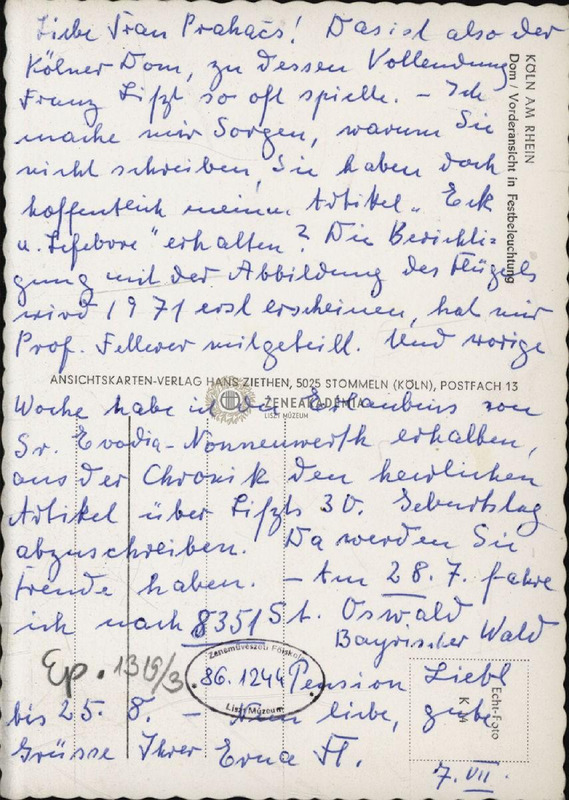 Liebe Frau Prahács! Das ist also der
Kölner Dom, zu dessen Vollendung
Franz Liszt so oft spielte. – Ich
mache mir Sorgen, warum Sie
nicht schreiben, Sie haben doch
hoffentlich meinen Artikel „Eck
u. Lefebvre" erhalten? Die Berichti-
gung mit der Abbildung des Flügels
wird 1971 erst erscheinen, hat mir
Prof. Fellerer mitgeteilt. Und vorige
Woche habe ich die Erlaubnis von
Sr. Evodia-Nonnenwerth erhalten,
aus der Chronik den herrlichen
Artikel über Liszts 30. Geburtstag
abzuschreiben. Da werden Sie
Freude haben. – Am 28. 7. fahre
ich nach 8351 St. Oswald
Bayrischer Wald
Pension Liebl
bis 25. 8. – liebe, gute
Grüsse Ihrer Erna H.
7. VII.
KÖLN AM RHEIN
Dom / Vorderansicht in Festbeleuchtung
ANSICHTSKARTEN-VERLAG HANS ZIETHEN, 5025 STOMMELN (KÖLN), POSTFACH 13
ZENEAKADÉMIA
LISZT MÚZEUM
Ep. 1319/3
Zeneművészeti Főiskola
86.1244
Liszt Múzeum
Echt-Foto